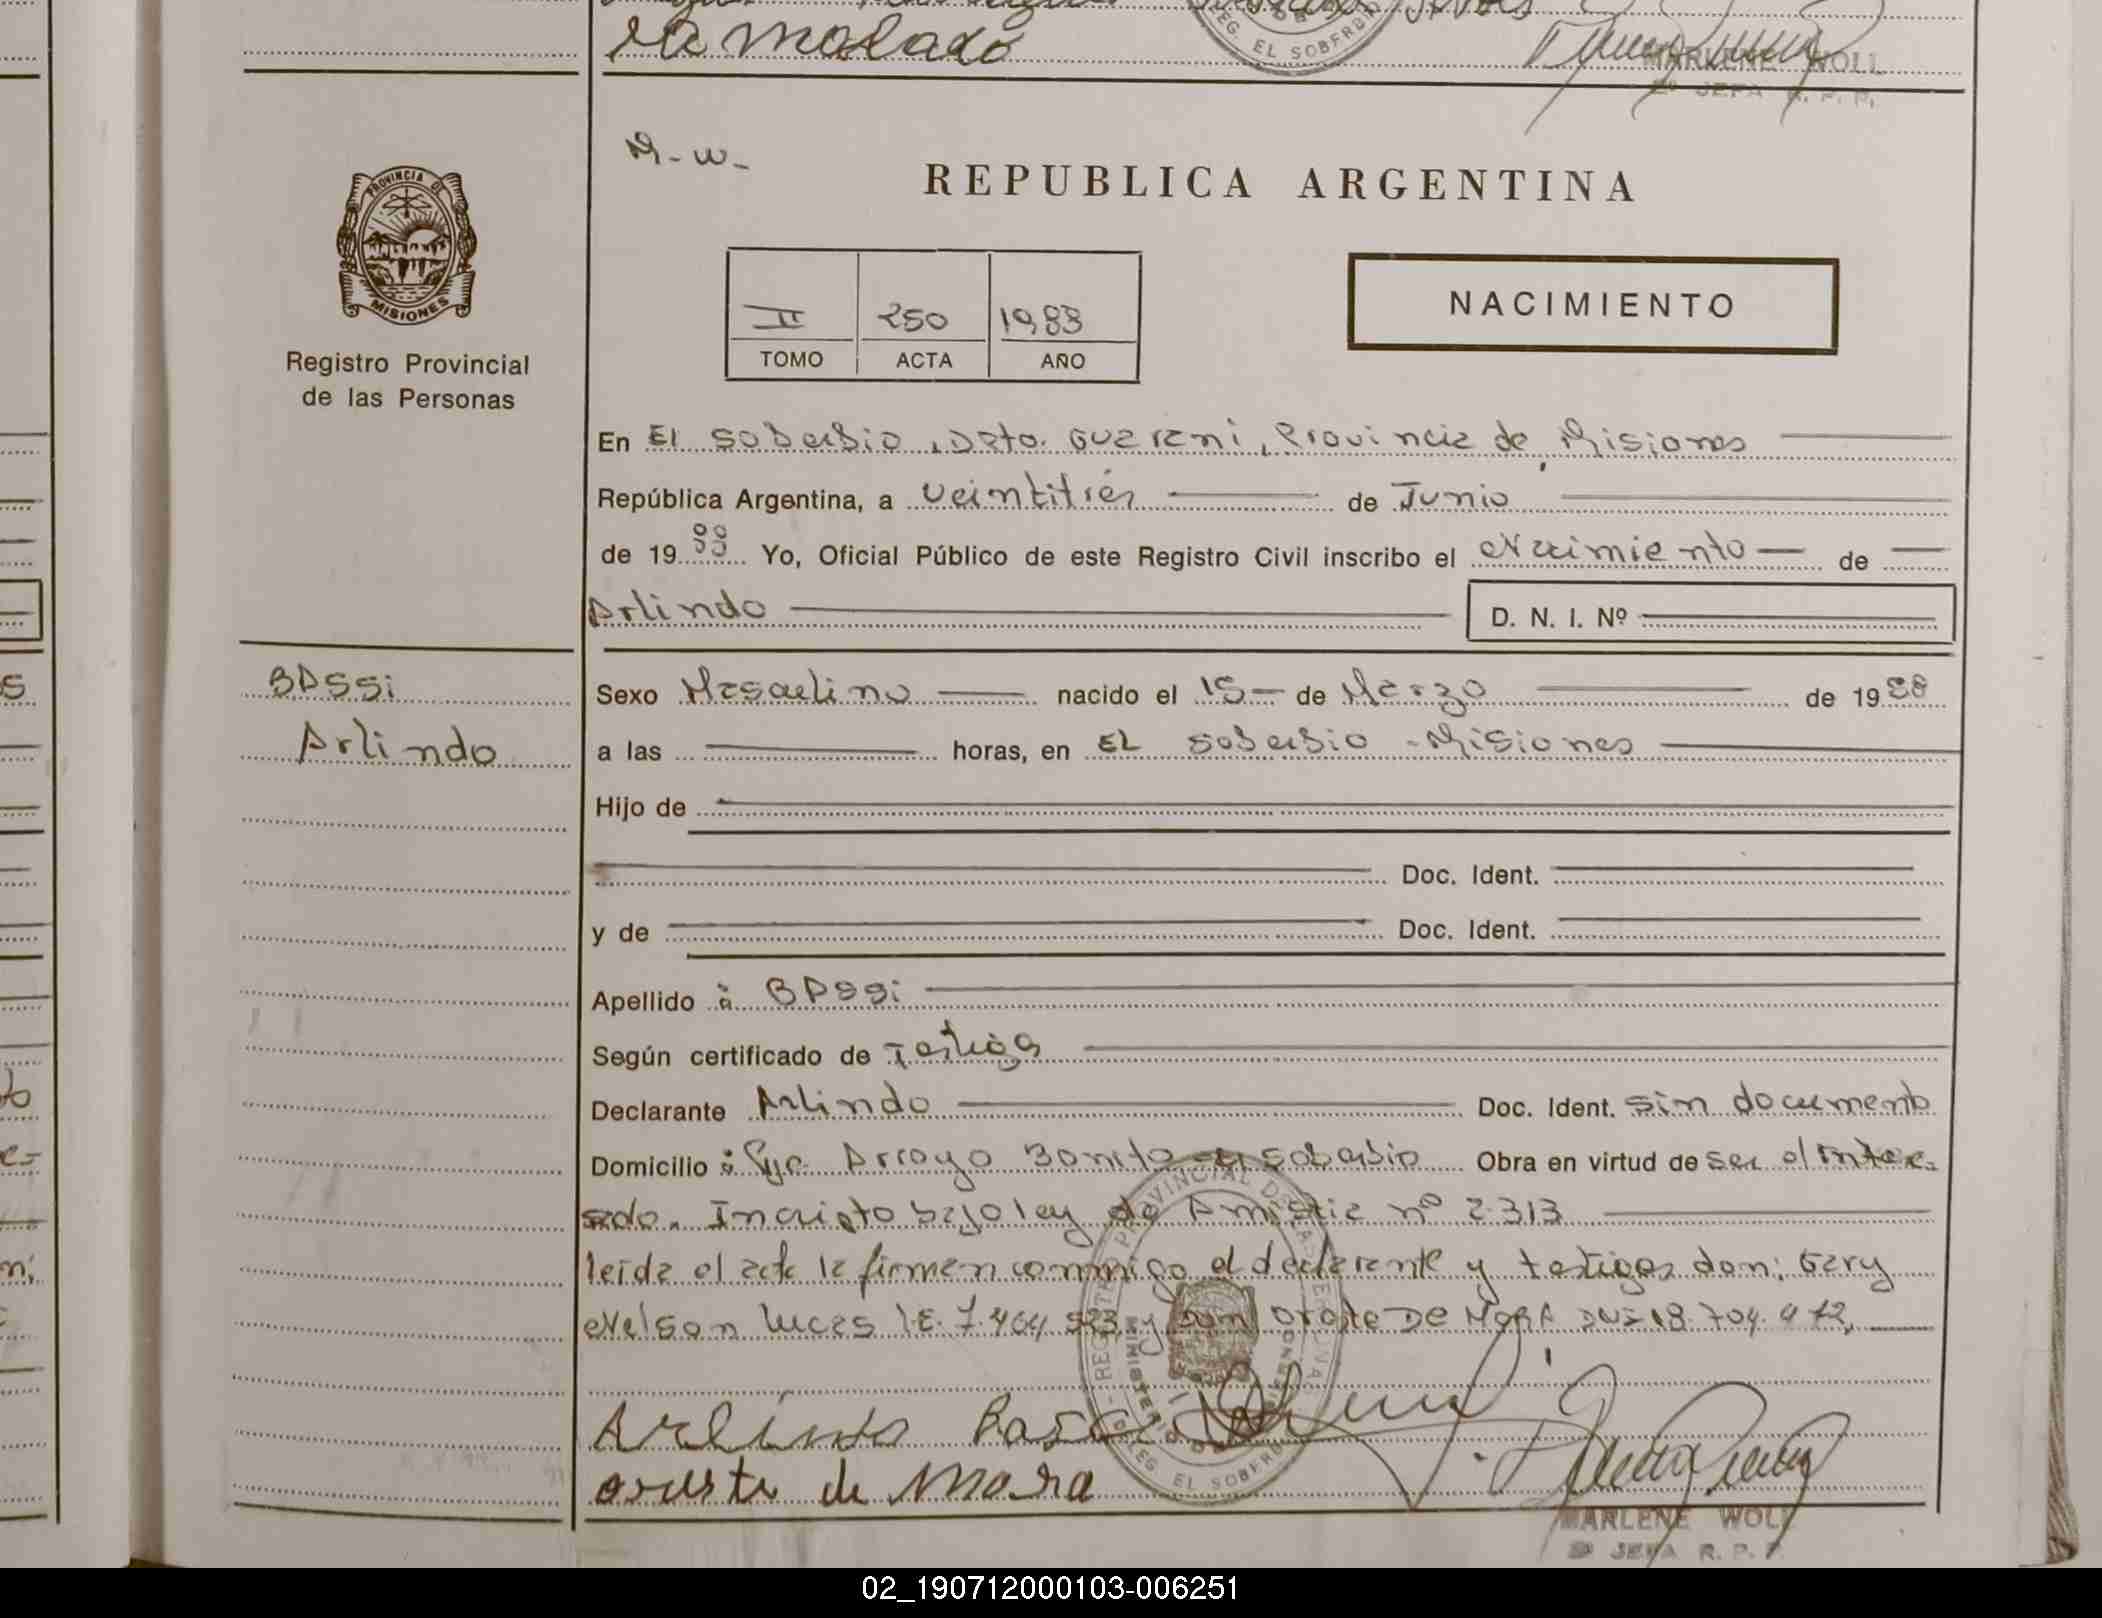 ramolado
EL SOBERBIO
MARLENE WOLL
2º JEFA R. P. P.
M-W-
REPUBLICA ARGENTINA
PROVINCIA DE
MISIONES
Registro Provincial
de las Personas
II 250 1983
TOMO ACTA AÑO
NACIMIENTO
En El Soberbio, Dpto. Guarani, Provincia de Misiones
República Argentina, a veintitrés de Junio
de 19 Yo, Oficial Público de este Registro Civil inscribo el Nacimiento de
Arlindo D. N. I. Nº
BASSi
Arlindo
Sexo Masculino nacido el 15 de Marzo de 19
a las horas, en EL Soberbio - Misiones
Hijo de
Doc. Ident.
y de Doc. Ident.
Apellido : BASSi
Según certificado de Testigos
Declarante Arlindo Doc. Ident. sin documento
Domicilio : Pje. Arroyo Bonito El Soberbio Obra en virtud de ser el intere-
sado. Inscripto bajo ley de Amistia nº 2313
leida el acta la firman conmigo el declarante y testigos don: Gery
Nelson Lucas l.E. 7.464.523 y don Oreste DE MORA DNI 18.704.972,
Arlindo Bassi
oreste de Mora
REG. EL SOBERBIO
MARLENE WOLL
2º JEFA R. P. P.
02_190712000103-006251